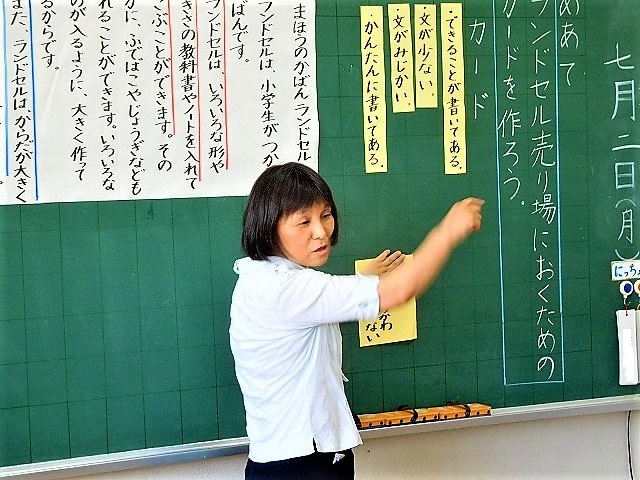 七月二日(月)
にっち
めあて
ランドセル売り場におくための
カードを作ろう。
カード
・できることが書いてある。
・文が少ない。
・文がみじかい。
・かんたんに書いてある。
がわ
ない
まほうのかばん ランドセル
ランドセルは、小学生がつか
ばんです。
ランドセルは、いろいろな形や
きさの教科書やノートを入れて
こぶことができます。その
かに、ふでばこやじょうぎなども
れることができます。いろいろな
のが入るように、大きく作って
るからです。
また、ランドセルは、からだが大きく